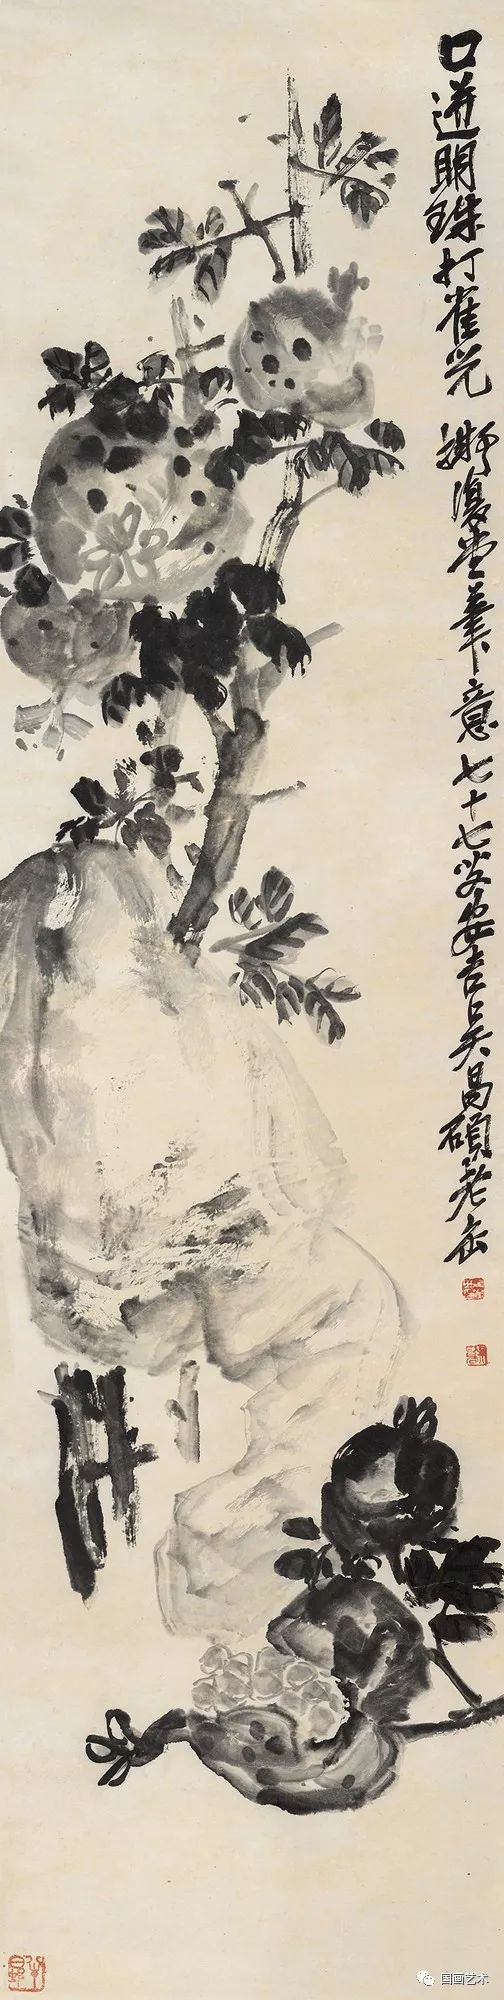 口迸明珠打雀儿 拟复堂笔意七十七岁安吉吴昌硕老缶
国画艺术